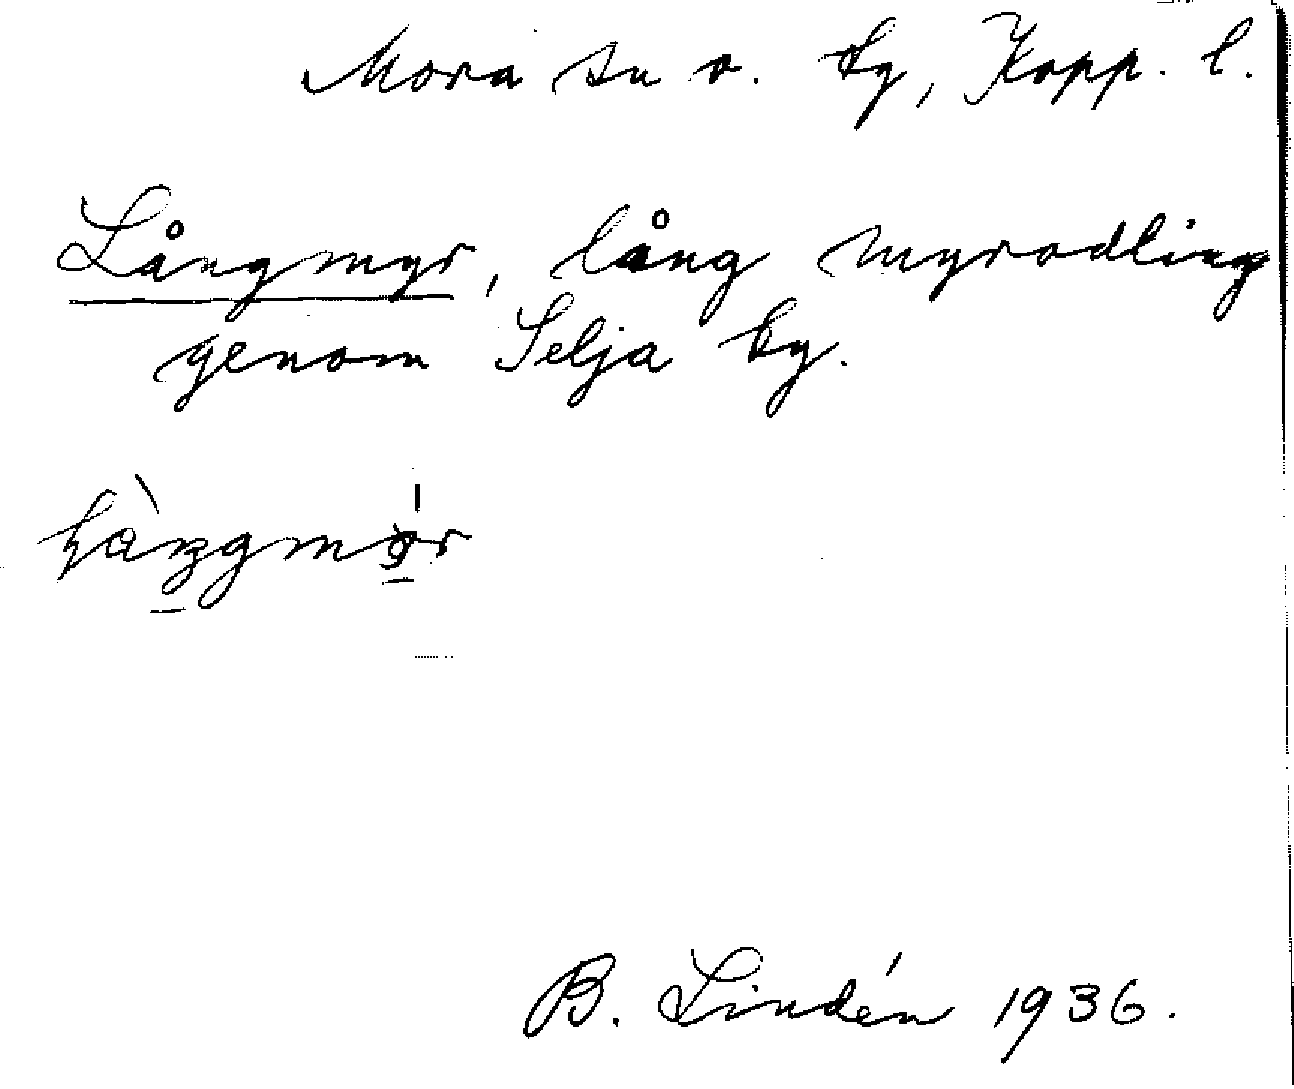 Mora sn o. by, Kopp. l.
Långmyr, lång myrodling
genom Selja by.
B. Lindén 1936.